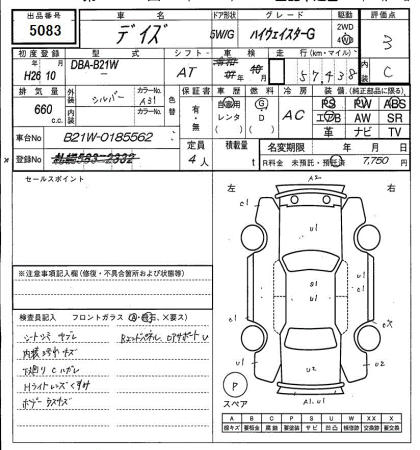 出品番号 車名 ドア形状 グレード 駆動 評価点
5083 デイズ 5W/G ハイウェイスターG 2WD 4WD 3
初度登録 型式 シフト 車検 走行(km・マイル) 内装
H26 10 DBA-B21W AT 57,438 C
排気量 外装 カラーNo. 色替 保証書 車歴 燃料 冷房 装備(純正部品に限る)
660 c.c. シルバー A31 有・無 自家用 レンタ G D AC PS PW ABS
エアB AW SR
内装 カラーNo. 革 ナビ TV
車台No B21W-0185562 定員 積載量 名変期限 年 月 日
登録No 札幌583-2332 4人 t R料金 未預託・預託済 7,750円
セールスポイント
左 右
※注意事項記入欄(修復・不具合箇所および状態等)
検査員記入 フロントガラス (A・飛石、×要ス)
シートシミ ヤブレ
内装 ヨゴレ キズ
下廻り C ハガレ
Hライトレンズくすみ
ボデー ウスキズ
A2
c1
U1
S1
U1
c1
U1
U2
U2
A1.U1
P
スペア
A B C P S U W X XX ×
線キズ 要板金 腐蝕 要塗装 サビ 凹凸 補修跡 交換跡 要交換